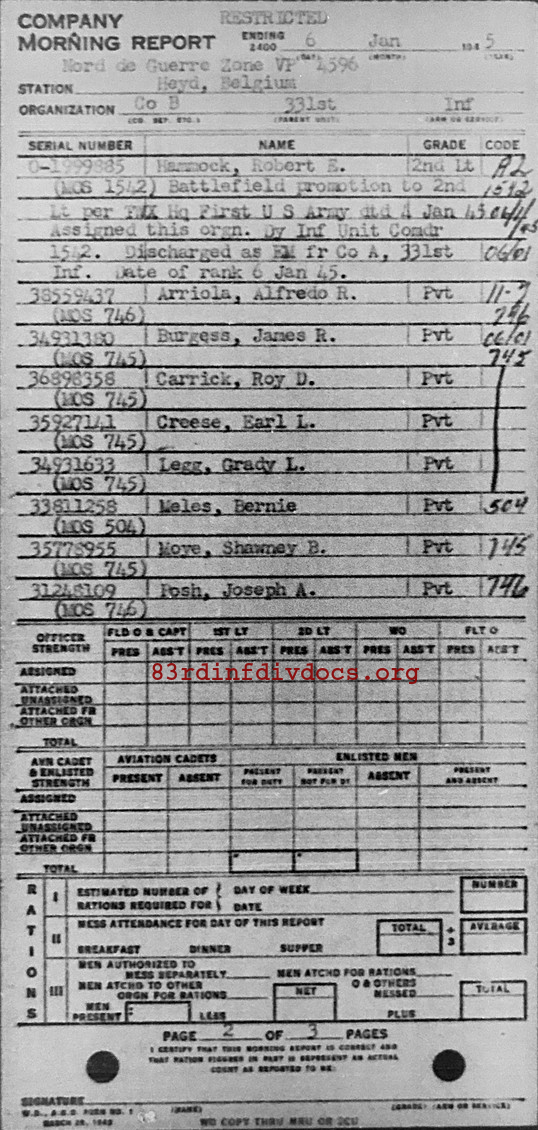 COMPANY RESTRICTED
MORNING REPORT ENDING 2400 6 Jan 194 5
(DAY) (MONTH) (YEAR)
Nord de Guerre Zone VP 4596
STATION Heyd, Belgium
ORGANIZATION Co B 331st Inf
(CO. DET. ETC.) (PARENT UNIT) (ARM OR SERVICE)
SERIAL NUMBER NAME GRADE CODE
O-1999885 Hammock, Robert E. 2nd Lt A2
(MOS 1542) Battlefield promotion to 2nd 1542
Lt per TWX Hq First U S Army dtd 4 Jan 45
Assigned this orgn. Dy Inf Unit Comdr
1542. Discharged as EM fr Co A, 331st 06/01
Inf. Date of rank 6 Jan 45.
38559437 Arriola, Alfredo R. Pvt 11-7
(MOS 746) 746
34931380 Burgess, James R. Pvt 06/01
(MOS 745) 745
36898358 Carrick, Roy D. Pvt
(MOS 745)
35927141 Creese, Earl L. Pvt
(MOS 745)
34931633 Legg, Grady L. Pvt
(MOS 745)
33811258 Meles, Bernie Pvt 504
(MOS 504)
35778955 Moye, Shawney B. Pvt 745
(MOS 745)
31248109 Posh, Joseph A. Pvt 746
(MOS 746)
OFFICER STRENGTH FLD O & CAPT 1ST LT 2D LT WO FLT O
PRES ABS'T PRES ABS'T PRES ABS'T PRES ABS'T PRES ABS'T
ASSIGNED
83rdinfdivdocs.org
ATTACHED UNASSIGNED
ATTACHED FR OTHER ORGN
TOTAL
AVN CADET & ENLISTED STRENGTH AVIATION CADETS ENLISTED MEN
PRESENT ABSENT PRESENT FOR DUTY PRESENT NOT FOR DY ABSENT PRESENT AND ABSENT
ASSIGNED
ATTACHED UNASSIGNED
ATTACHED FR OTHER ORGN
TOTAL
RATIONS
I ESTIMATED NUMBER OF RATIONS REQUIRED FOR DAY OF WEEK DATE NUMBER
II MESS ATTENDANCE FOR DAY OF THIS REPORT TOTAL ÷ 3 AVERAGE
BREAKFAST DINNER SUPPER
III MEN AUTHORIZED TO MESS SEPARATELY MEN ATCHD FOR RATIONS
MEN ATCHD TO OTHER ORGN FOR RATIONS NET O & OTHERS MESSED TOTAL
MEN PRESENT LESS PLUS
PAGE 2 OF 3 PAGES
I CERTIFY THAT THIS MORNING REPORT IS CORRECT AND
THAT RATION FIGURES IN PART III REPRESENT AN ACTUAL
COUNT AS REPORTED TO ME:
SIGNATURE
(NAME) (GRADE) (ARM OR SERVICE)
W.D., A.G.O. FORM NO. 1
MARCH 28, 1943 WD COPY THRU MRU OR SCU